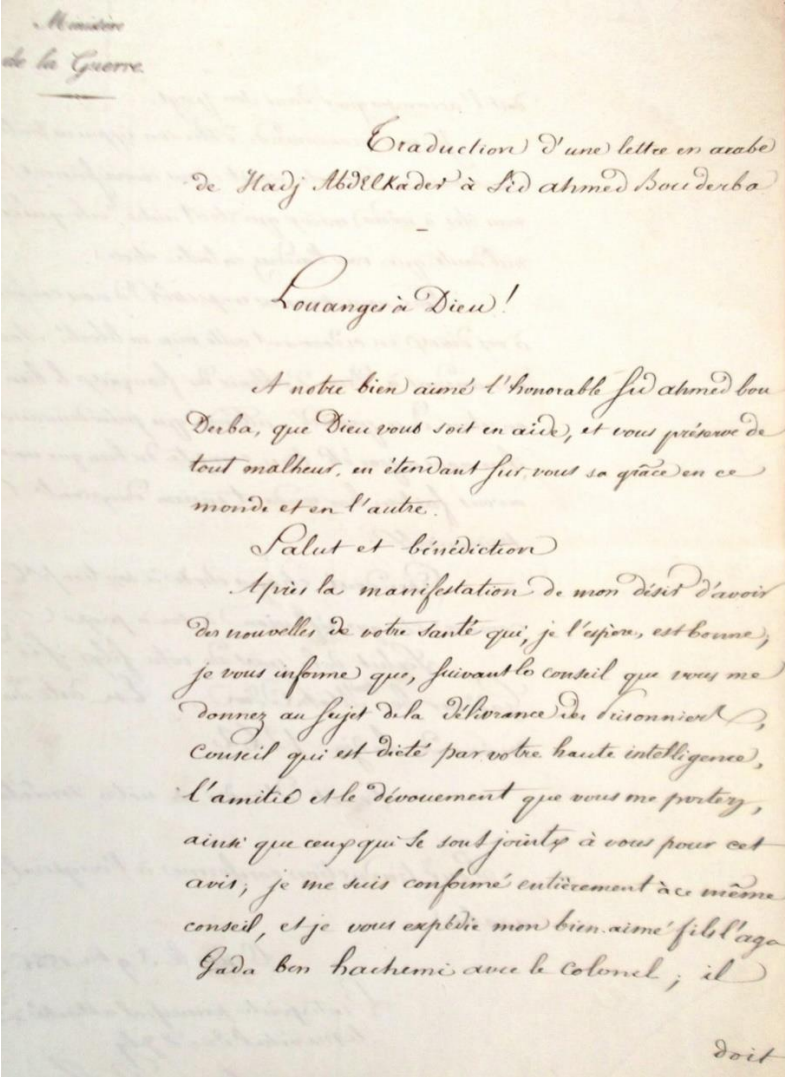 Ministère
de la Guerre.
Traduction d'une lettre en arabe
de Hadj AbdElKader à Sid ahmed Bouderba
Louanges à Dieu!
A notre bien aimé l'honorable Sid ahmed bou
Derba, que Dieu vous soit en aide, et vous préserve de
tout malheur, en étendant sur vous sa grâce en ce
monde et en l'autre.
Salut et bénédiction
Après la manifestation de mon désir d'avoir
des nouvelles de votre santé qui, je l'espère, est bonne,
je vous informe que, suivant le conseil que vous me
donnez au sujet de la délivrance des prisonniers,
Conseil qui est dicté par votre haute intelligence,
l'amitié et le dévouement que vous me portez,
ainsi que ceux qui se sont joints à vous pour cet
avis; je me suis conformé entièrement à ce même
conseil, et je vous expédie mon bien-aimé fils l'aga
Gada ben hachemi avec le Colonel; il
doit